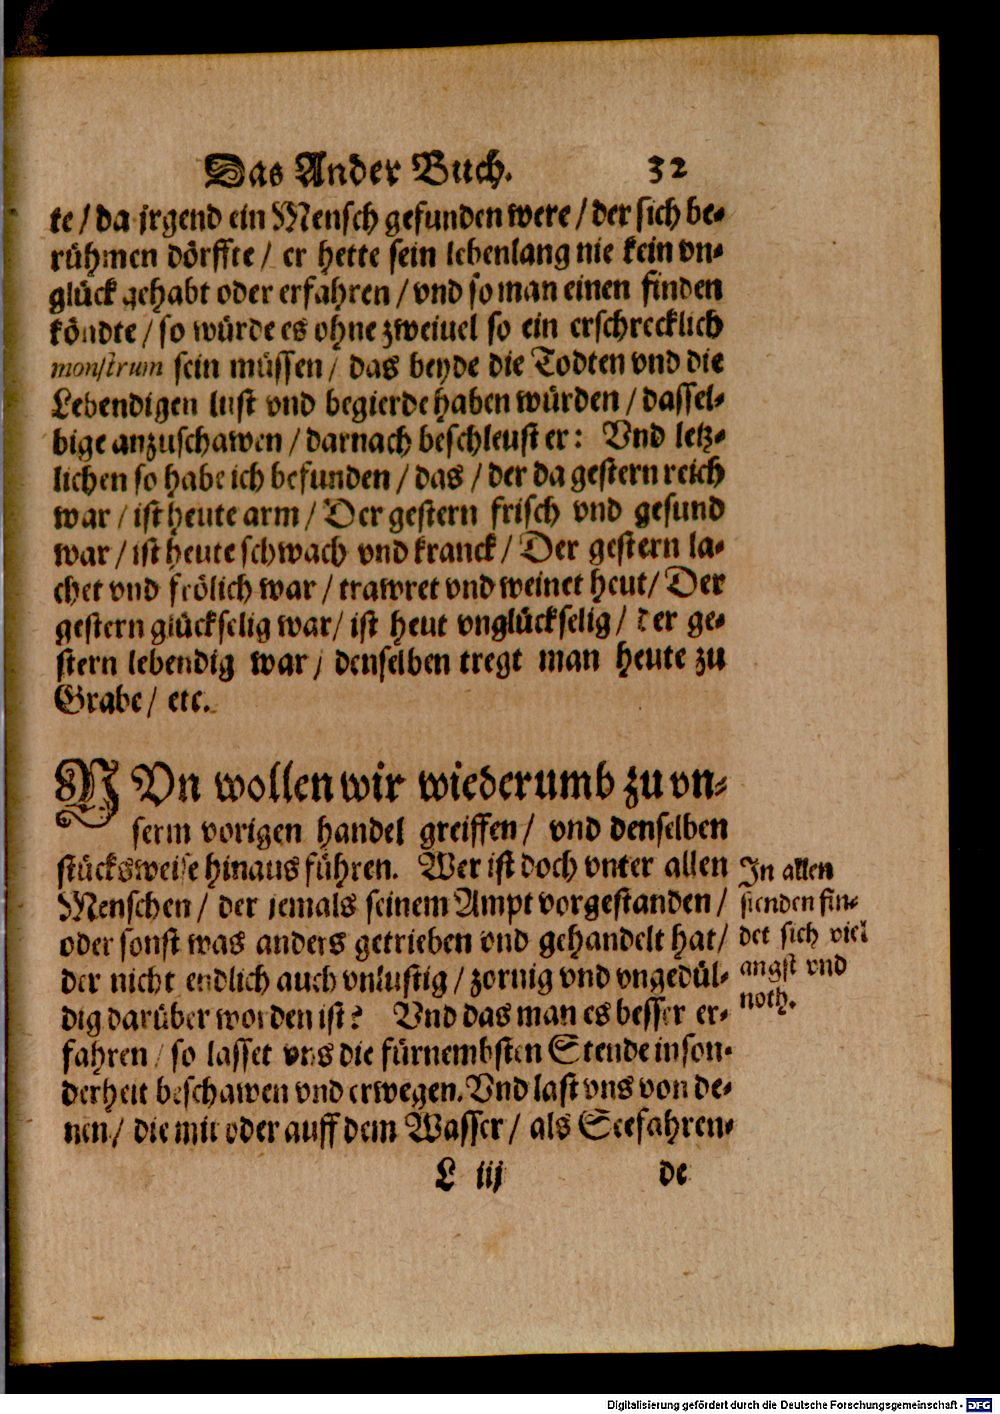 Das Ander Buch. 32
te / da jrgend ein Mensch gefunden were / der sich be-
rühmen dörffte / er hette sein lebenlang nie kein vn-
glück gehabt oder erfahren / vnd so man einen finden
köndte / so würde es ohne zweiuel so ein erschrecklich
monstrum sein müssen / das beyde die Todten vnd die
Lebendigen lust vnd begierde haben würden / dassel-
bige anzuschawen / darnach beschleust er: Vnd letz-
lichen so habe ich befunden / das / der da gestern reich
war / ist heute arm / Der gestern frisch vnd gesund
war / ist heute schwach vnd kranck / Der gestern la-
chet vnd frölich war / trawret vnd weinet heut / Der
gestern glückselig war / ist heut vnglückselig / der ge-
stern lebendig war / denselben tregt man heute zu
Grabe / etc.
NVn wollen wir wiederumb zu vn-
serm vorigen handel greiffen / vnd denselben
stücksweise hinaus führen. Wer ist doch vnter allen
Menschen / der jemals seinem Ampt vorgestanden /
oder sonst was anders getrieben vnd gehandelt hat /
der nicht endlich auch vnlustig / zornig vnd vngedül-
dig darüber worden ist? Vnd das man es besser er-
fahren / so lasset vns die fürnembsten Stende inson-
derheit beschawen vnd erwegen. Vnd last vns von de-
nen / die mit oder auff dem Wasser / als Seefahren-
In allen
stenden fin-
det sich viel
angst vnd
noth.
L iij de
Digitalisierung gefördert durch die Deutsche Forschungsgemeinschaft - DFG